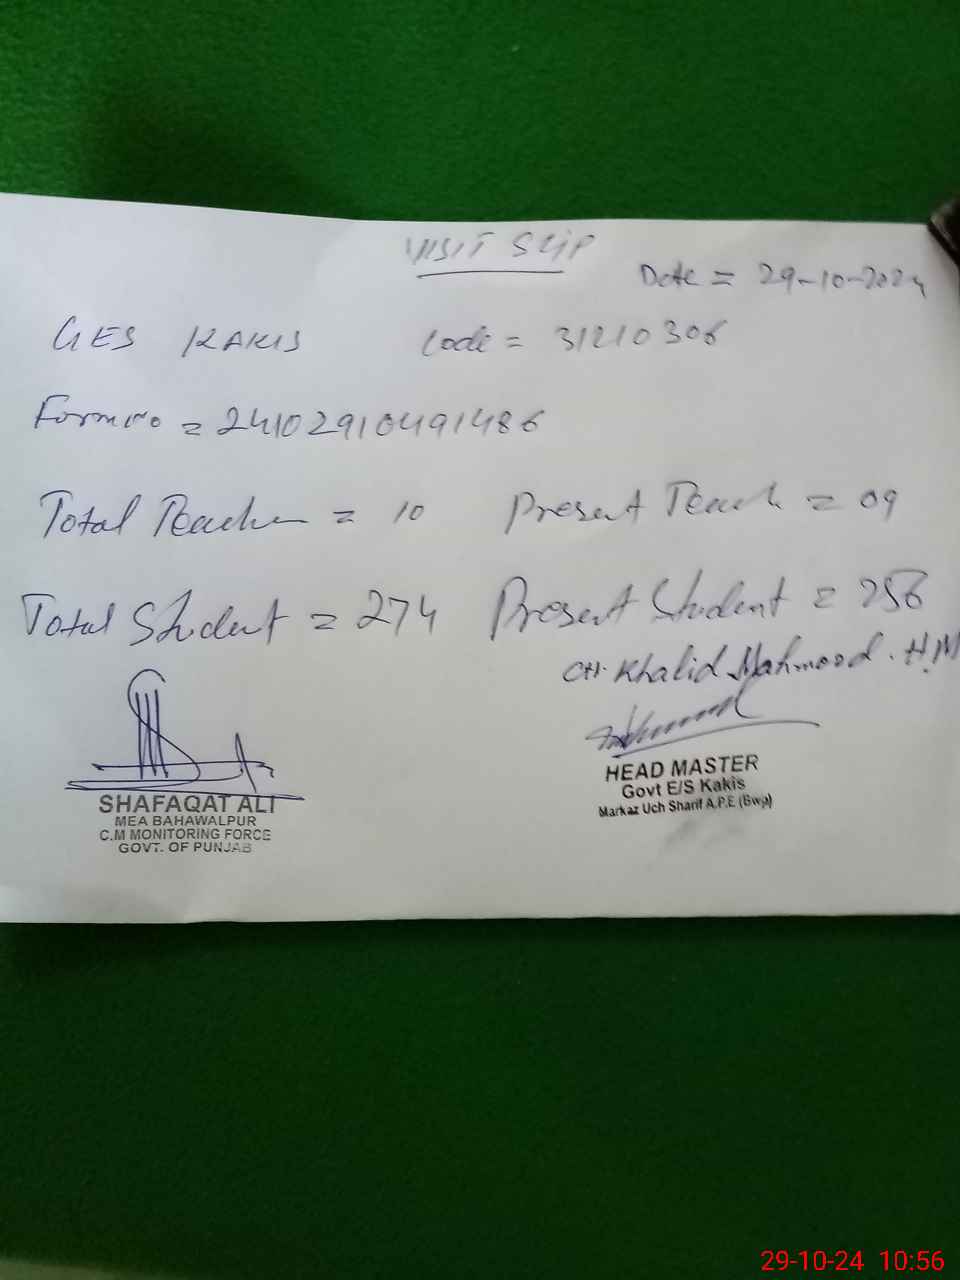 VISIT SLIP
Date = 29-10-2024
GES KAKIS Code = 31210306
Form no = 24102910491486
Total Teacher = 10 Present Teach = 09
Total Student = 274 Present Student = 256
CH. Khalid Mahmood. H.M
SHAFAQAT ALI
MEA BAHAWALPUR
C.M MONITORING FORCE
GOVT. OF PUNJAB
HEAD MASTER
Govt E/S Kakis
Markaz Uch Sharif A.P.E (Bwp)
29-10-24 10:56